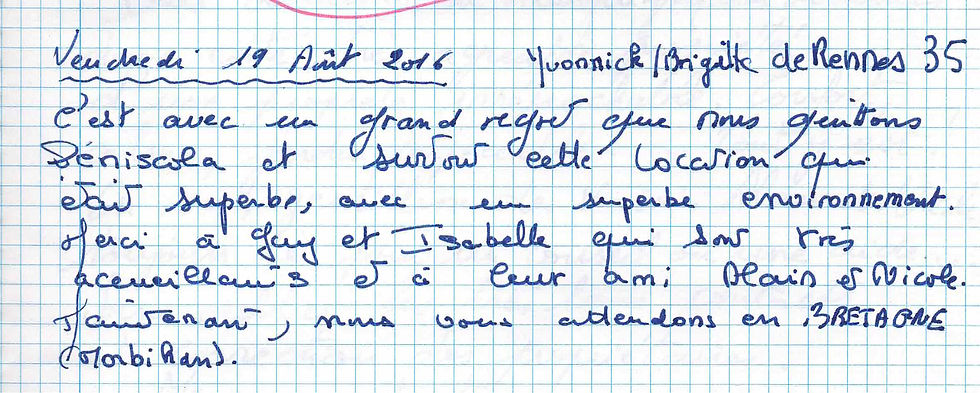 Vendredi 19 Août 2016 Yvonnick/Brigitte de Rennes 35
C'est avec un grand regret que nous quittons
Péniscola et surtout cette location qui
était superbe, avec un superbe environnement.
Merci à Guy et Isabelle qui sont très
acceuillants et à leur ami Alain et Nicole.
Maintenant, nous vous attendons en BRETAGNE
(Morbihan).